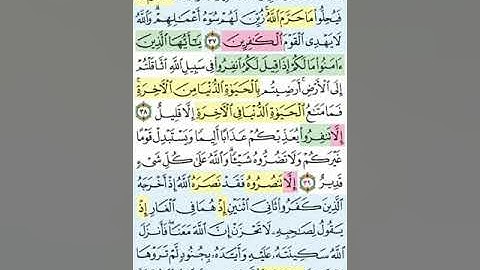 فَيُحِلُّوا۟ مَا حَرَّمَ ٱللَّهُ ۚ زُيِّنَ لَهُمْ سُوٓءُ أَعْمَـٰلِهِمْ ۗ وَٱللَّهُ
لَا يَهْدِى ٱلْقَوْمَ ٱلْكَـٰفِرِينَ ٣٧ يَـٰٓأَيُّهَا ٱلَّذِينَ
ءَامَنُوا۟ مَا لَكُمْ إِذَا قِيلَ لَكُمُ ٱنفِرُوا۟ فِى سَبِيلِ ٱللَّهِ ٱثَّاقَلْتُمْ
إِلَى ٱلْأَرْضِ ۚ أَرَضِيتُم بِٱلْحَيَوٰةِ ٱلدُّنْيَا مِنَ ٱلْـَٔاخِرَةِ ۚ
فَمَا مَتَـٰعُ ٱلْحَيَوٰةِ ٱلدُّنْيَا فِى ٱلْـَٔاخِرَةِ إِلَّا قَلِيلٌ ٣٨
إِلَّا تَنفِرُوا۟ يُعَذِّبْكُمْ عَذَابًا أَلِيمًا وَيَسْتَبْدِلْ قَوْمًا
غَيْرَكُمْ وَلَا تَضُرُّوهُ شَيْـًٔا ۗ وَٱللَّهُ عَلَىٰ كُلِّ شَىْءٍ
قَدِيرٌ ٣٩ إِلَّا تَنصُرُوهُ فَقَدْ نَصَرَهُ ٱللَّهُ إِذْ أَخْرَجَهُ
ٱلَّذِينَ كَفَرُوا۟ ثَانِىَ ٱثْنَيْنِ إِذْ هُمَا فِى ٱلْغَارِ إِذْ
يَقُولُ لِصَـٰحِبِهِۦ لَا تَحْزَنْ إِنَّ ٱللَّهَ مَعَنَا ۖ فَأَنزَلَ
ٱللَّهُ سَكِينَتَهُۥ عَلَيْهِ وَأَيَّدَهُۥ بِجُنُودٍ لَّمْ تَرَوْهَا